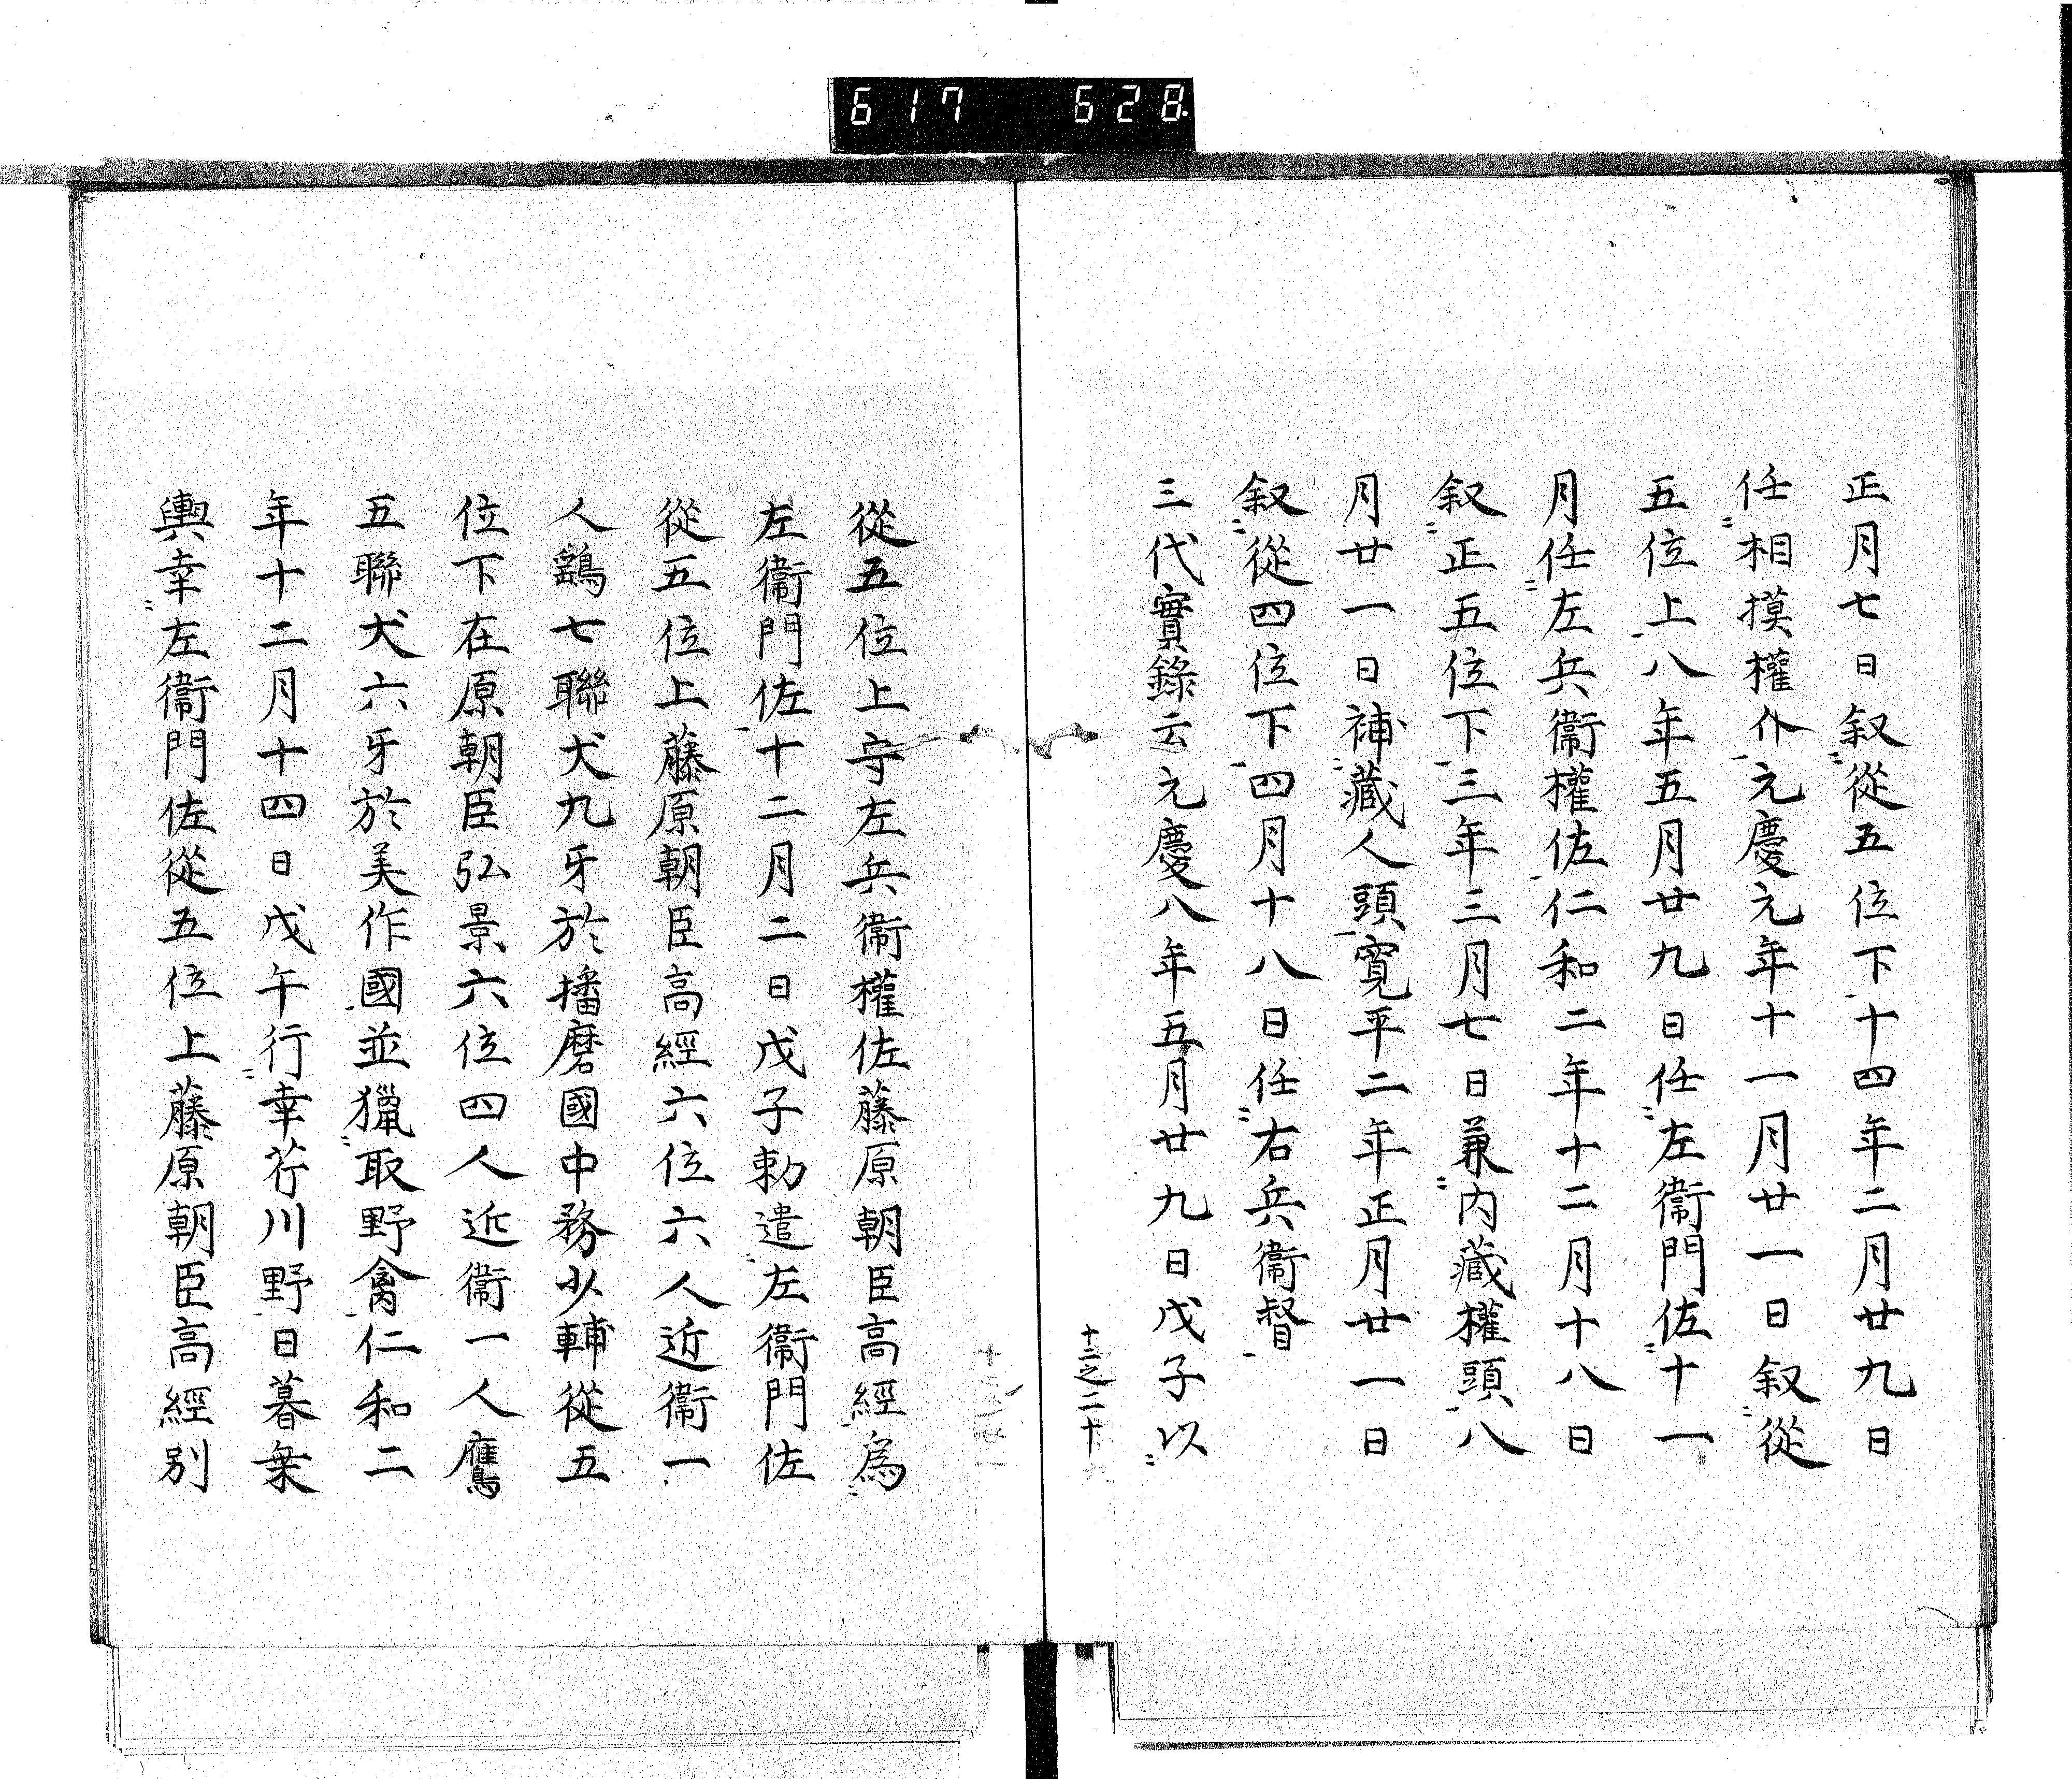 617 628
正月七日叙從五位下十四年二月廿九日
任相摸權介元慶元年十一月廿一日叙從
五位上八年五月廿九日任左衞門佐十一
月任左兵衞權佐仁和二年十二月十八日
叙正五位下三年三月七日兼内藏權頭八
月廿一日補藏人頭寛平二年正月廿一日
叙從四位下四月十八日任右兵衞督
三代實錄云元慶八年五月廿九日戊子以
十二之二十
從五位上守左兵衞權佐藤原朝臣高經爲
左衞門佐十二月二日戊子勅遣左衞門佐
從五位上藤原朝臣高經六位六人近衞一
人鷂七聯犬九牙於播磨國中務少輔從五
位下在原朝臣弘景六位四人近衞一人鷹
五聯犬六牙於美作國並獵取野禽仁和二
年十二月十四日戊午行幸芹川野日暮乗
輿幸左衞門佐從五位上藤原朝臣高經別